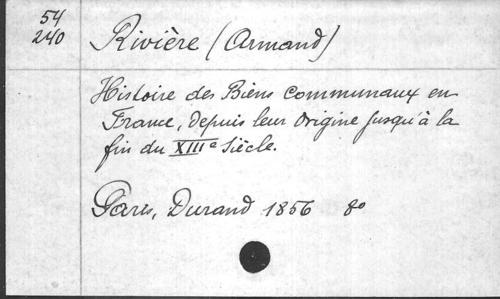 54
240
Rivière (Armand)
Histoire des Biens communaux en
France, depuis leur Origine jusqu'à la
fin du XIIIe Siècle.
Paris, Durand 1856 8o